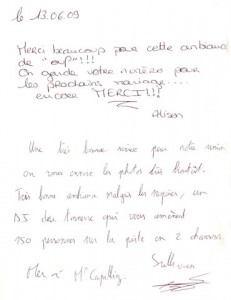 le 13.06.09
Merci beaucoup pour cette ambiance
de "ouf"!!!
On garde votre numéro pour
les prochains mariage....
encore MERCI!!!
Alison
Une très bonne soirée pour notre union
on vous envoie les photos très bientôt.
Très bonne ambiance malgré les requins, un
DJ du tonnerre qui vous amènent
150 personnes sur la piste en 2 chansons.
Merci à Mr